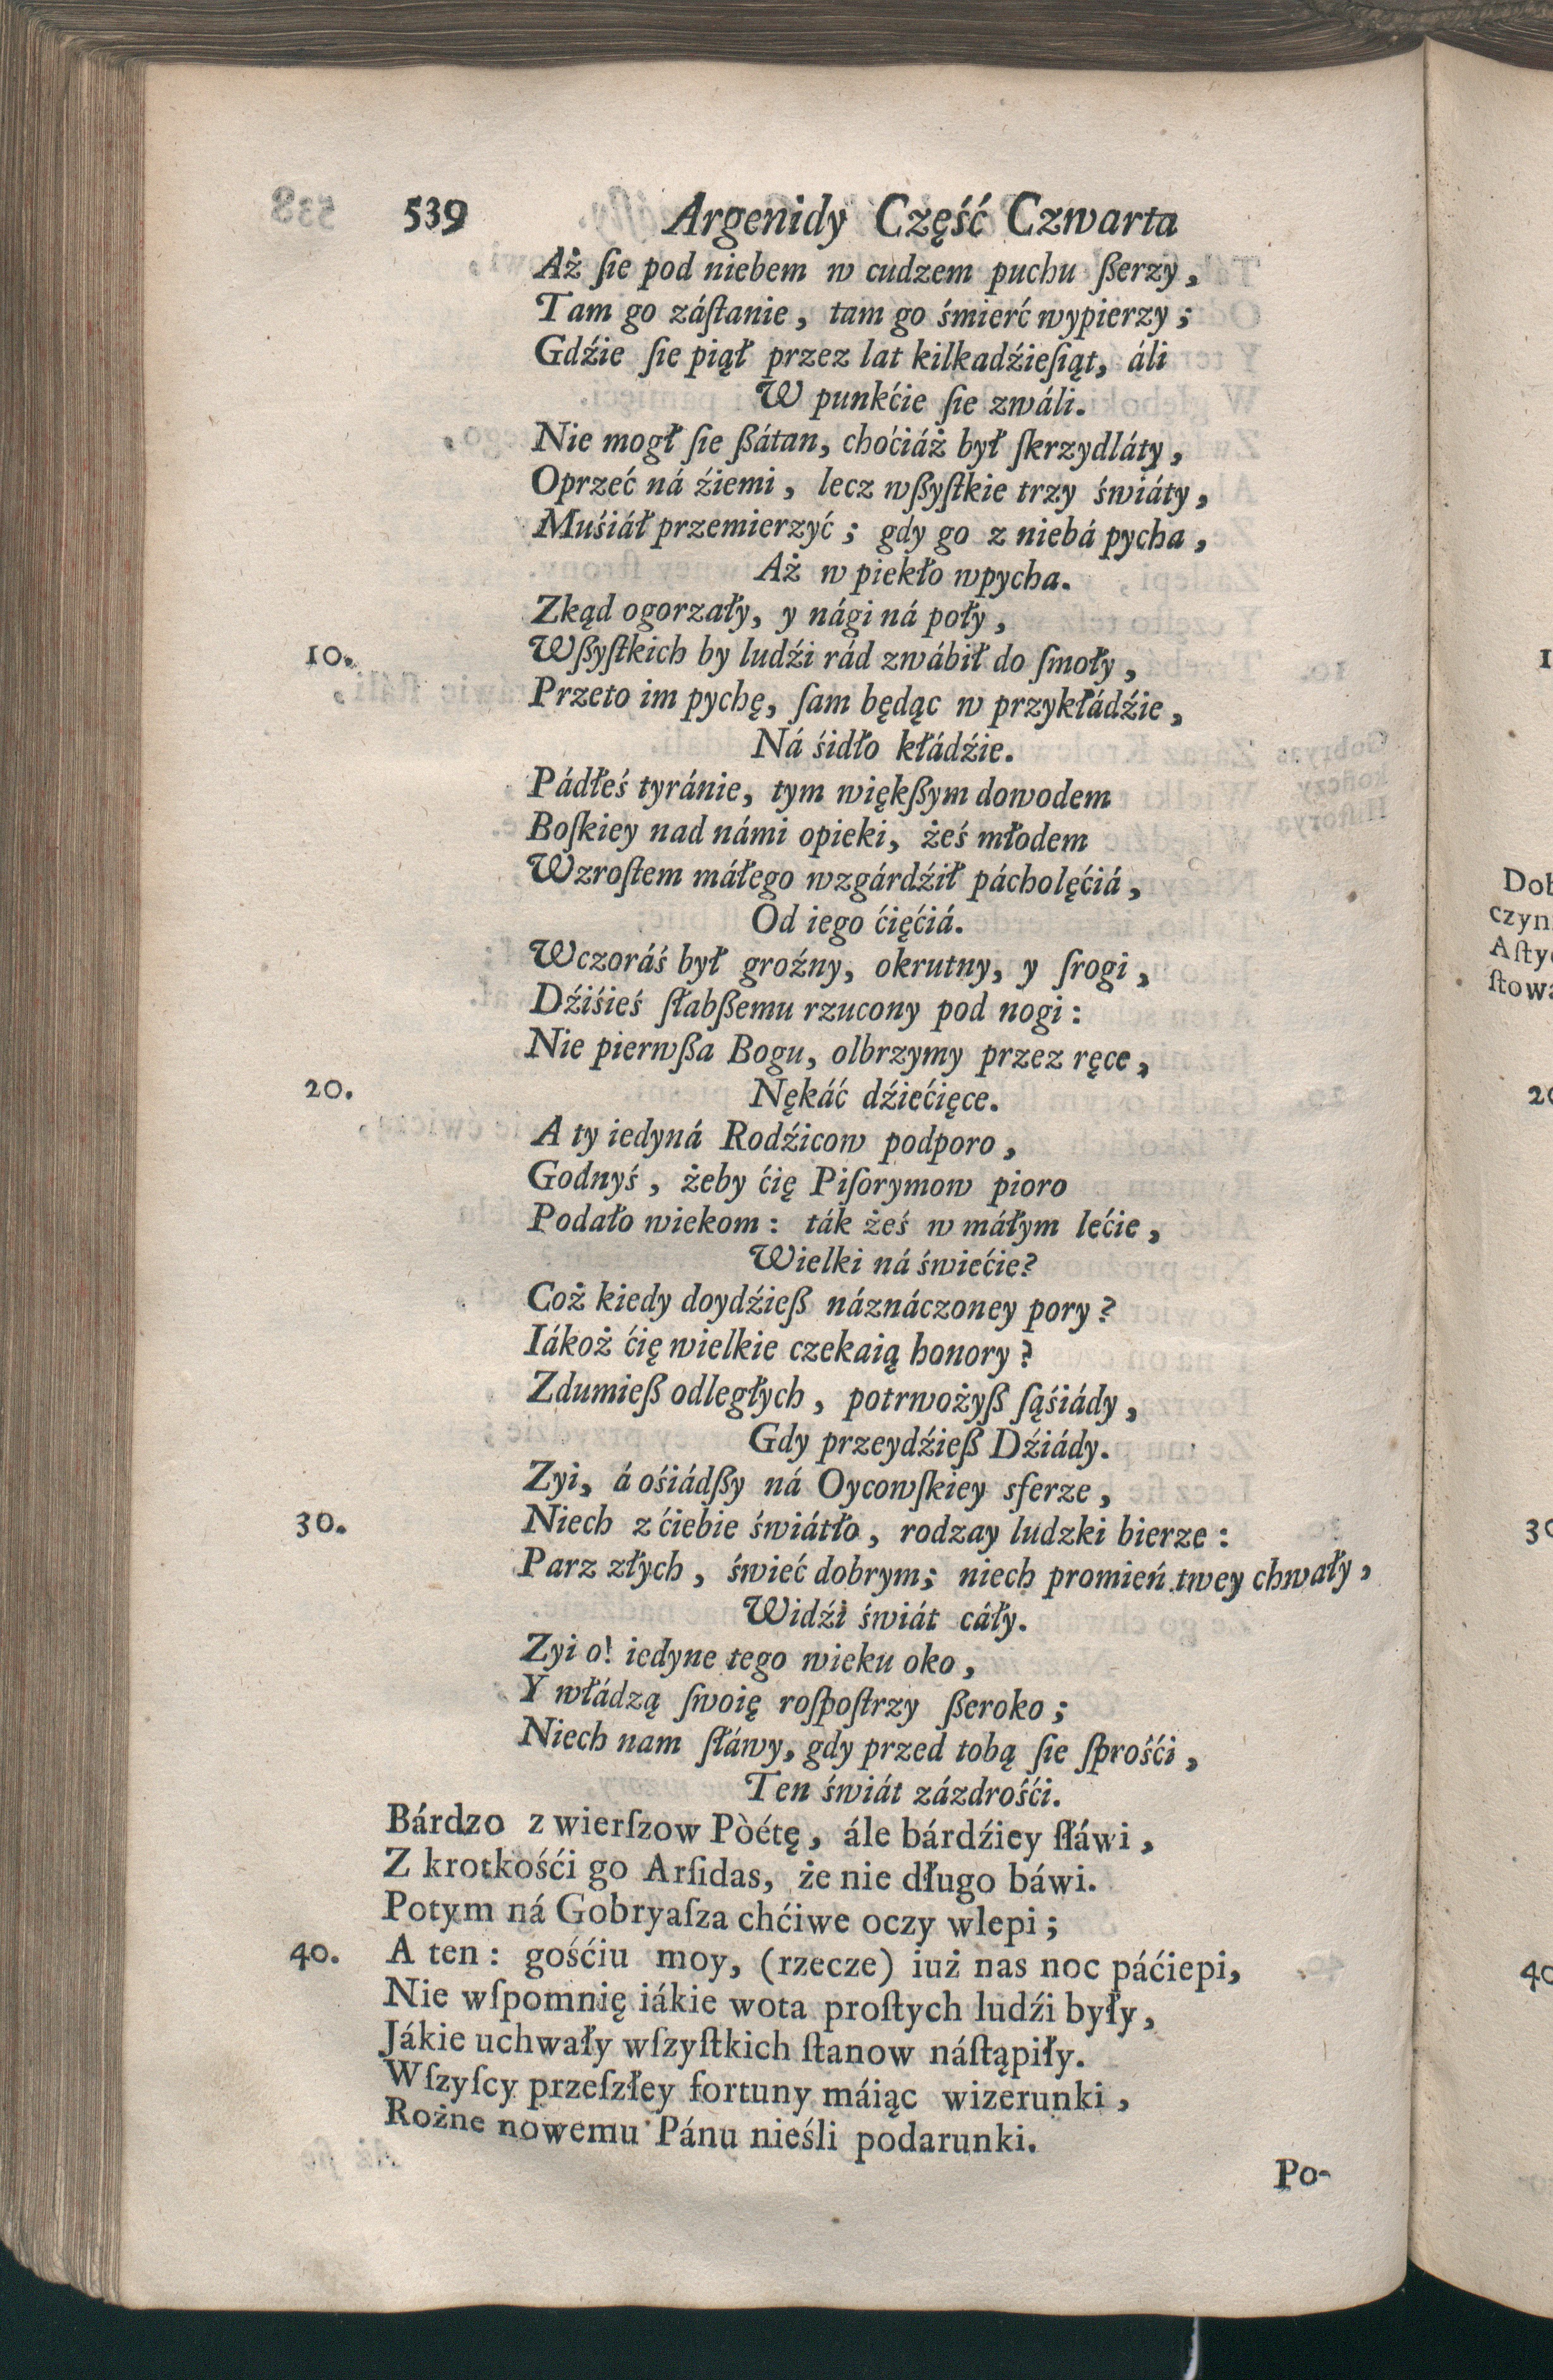 539 Argenidy Część Czwarta
Aż ſie pod niebem w cudzem puchu ßerzy,
Tam go záſtanie, tam go śmierć wypierzy;
Gdźie ſie piął przez lat kilkadźieſiąt, áli
W punkćie ſie zwáli.
Nie mogł ſie ßátan, choćiáż był ſkrzydláty,
Oprzeć ná źiemi, lecz wßyſtkie trzy świáty,
Muśiáł przemierzyć; gdy go z niebá pycha,
Aż w piekło wpycha.
Zkąd ogorzały, y nági ná poły,
10. Wßyſtkich by ludźi rád zwábił do ſmoły,
Przeto im pychę, ſam będąc w przykłádźie,
Ná śidło kłádźie.
Pádłeś tyránie, tym więkßym dowodem
Boſkiey nad námi opieki, żeś młodem
Wzroſtem máłego wzgárdźił pácholęćiá,
Od iego ćięćiá.
Wczoráś był groźny, okrutny, y ſrogi,
Dźiśieś ſłabßemu rzucony pod nogi:
Nie pierwßa Bogu, olbrzymy przez ręce,
20. Nękáć dźiećięce.
A ty iedyná Rodźicow podporo,
Godnyś, żeby ćię Piſorymow pioro
Podało wiekom: ták żeś w máłym lećie,
Wielki ná świećie?
Coż kiedy doydźieß náznáczoney pory?
Iákoż ćię wielkie czekaią honory?
Zdumieß odległych, potrwożyß ſąśiády,
Gdy przeydźieß Dźiády.
Zyi, á ośiádßy ná Oycowſkiey sferze,
30. Niech z ćiebie świátło, rodzay ludzki bierze:
Parz złych, świeć dobrym; niech promień twey chwały,
Widźi świát cáły.
Zyi o! iedyne tego wieku oko,
Y włádzą ſwoię roſpoſtrzy ßeroko;
Niech nam ſłáwy, gdy przed tobą ſie ſprośći,
Ten świát zázdrośći.
Bárdzo z wierſzow Pòétę, ále bárdźiey ſłáwi,
Z krotkośći go Arſidas, że nie długo báwi.
Potym ná Gobryaſza chćiwe oczy wlepi;
40. A ten: gośćiu moy, (rzecze) iuż nas noc páćiepi,
Nie wſpomnię iákie wota proſtych ludźi były,
Jákie uchwały wſzyſtkich ſtanow náſtąpiły.
Wſzyſcy przeſzłey fortuny máiąc wizerunki,
Rożne nowemu Pánu nieśli podarunki.
Po-